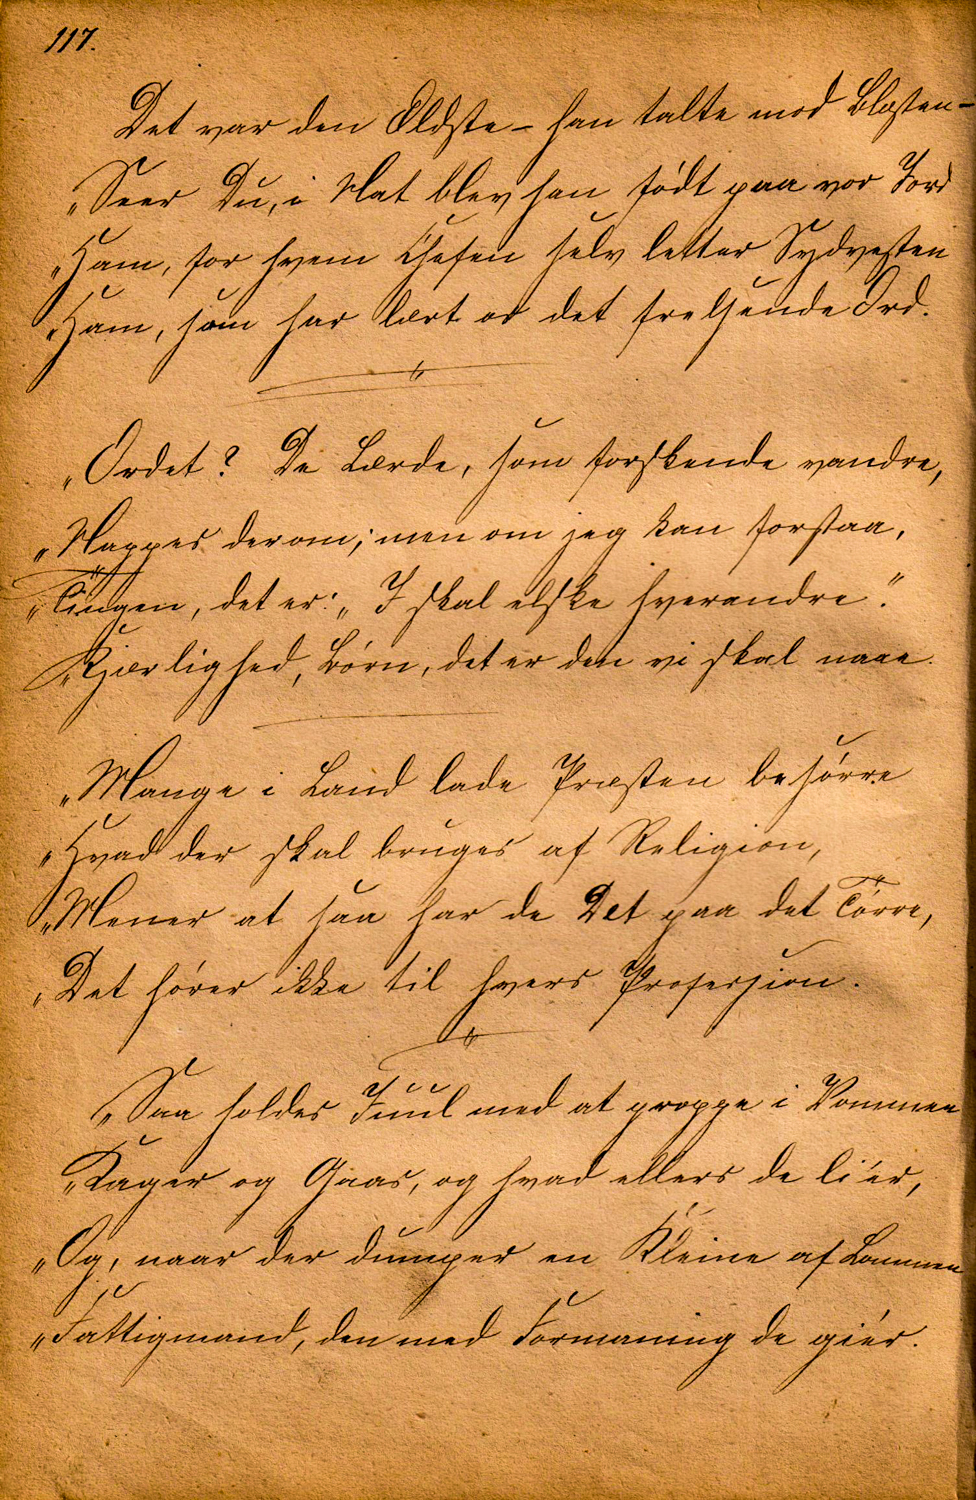 117.
Det var den Ældste – han talte mod Blæsten –
„Seer Du, i Nat blev han født paa vor Jord
„Ham, for hvem Chefen selv letter Sydvesten
„Ham, som har lært os det frelsende Ord.
„Ordet? De Lærde, som forskende vandre,
„Nappes derom; men om jeg kan forstaa,
„Tingen, det er: „I skal elske hverandre“.
„Kjærlighed, Børn, det er den vi skal naae.
„Mange i Land lade Præsten besørre
„Hvad der skal bruges af Religion,
„Mener at saa har de Det paa det Tørre,
„Det hører ikke til hvers Profession.
„Saa holdes Juul med at proppe i Vommen
„Kager og Gaas, og hvad ellers de li'er,
„Og, naar der dumper en Kleine af Lommen
„Fattigmand, den med Formaning de giér.